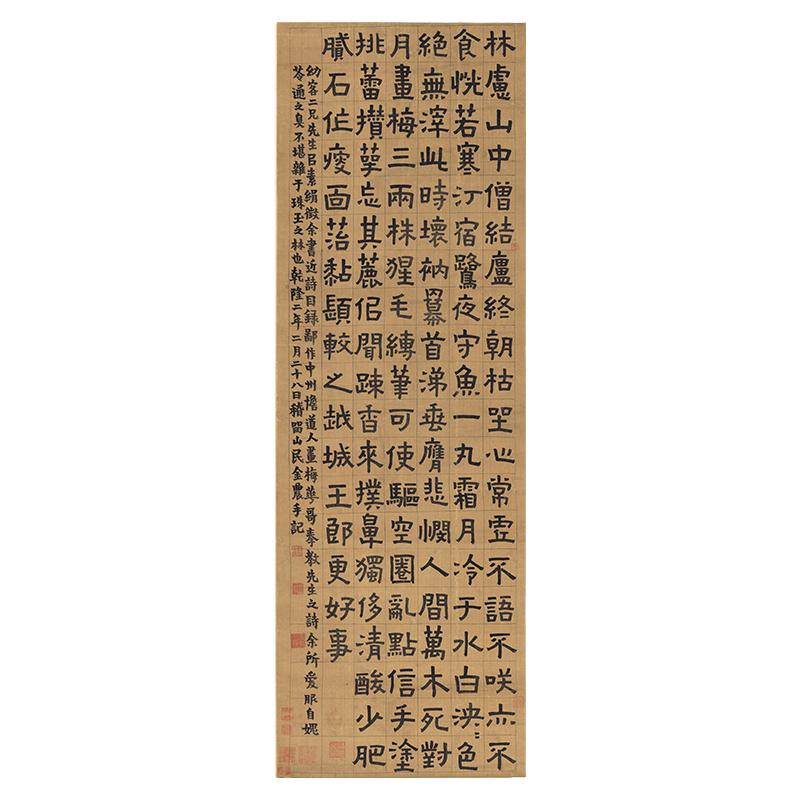 林慮山中僧結廬終朝枯坐心常虛不語不咲亦不
食恍若寒汀宿鷺夜守魚一丸霜月冷于水白泱〻色
絕無滓此時壞衲冪首涕垂膺悲憫人間萬木死對
月畫梅三兩株猩毛縛筆可使驅空圈亂點信手塗
挑蕾攢萼忘其麤但聞踈香來撲鼻獨侈清酸少肥
膩石作瘦面苔黏髭較之越城王郎更好事
幼客二兄先生呂素絹徵余書近詩目録鄙作中州憺道人畫梅華哥奉教先生之詩余所愛服自媿
苓通之臭不堪雜于珠玉之林也乾隆二年二月二十八日稽留山民金農手記